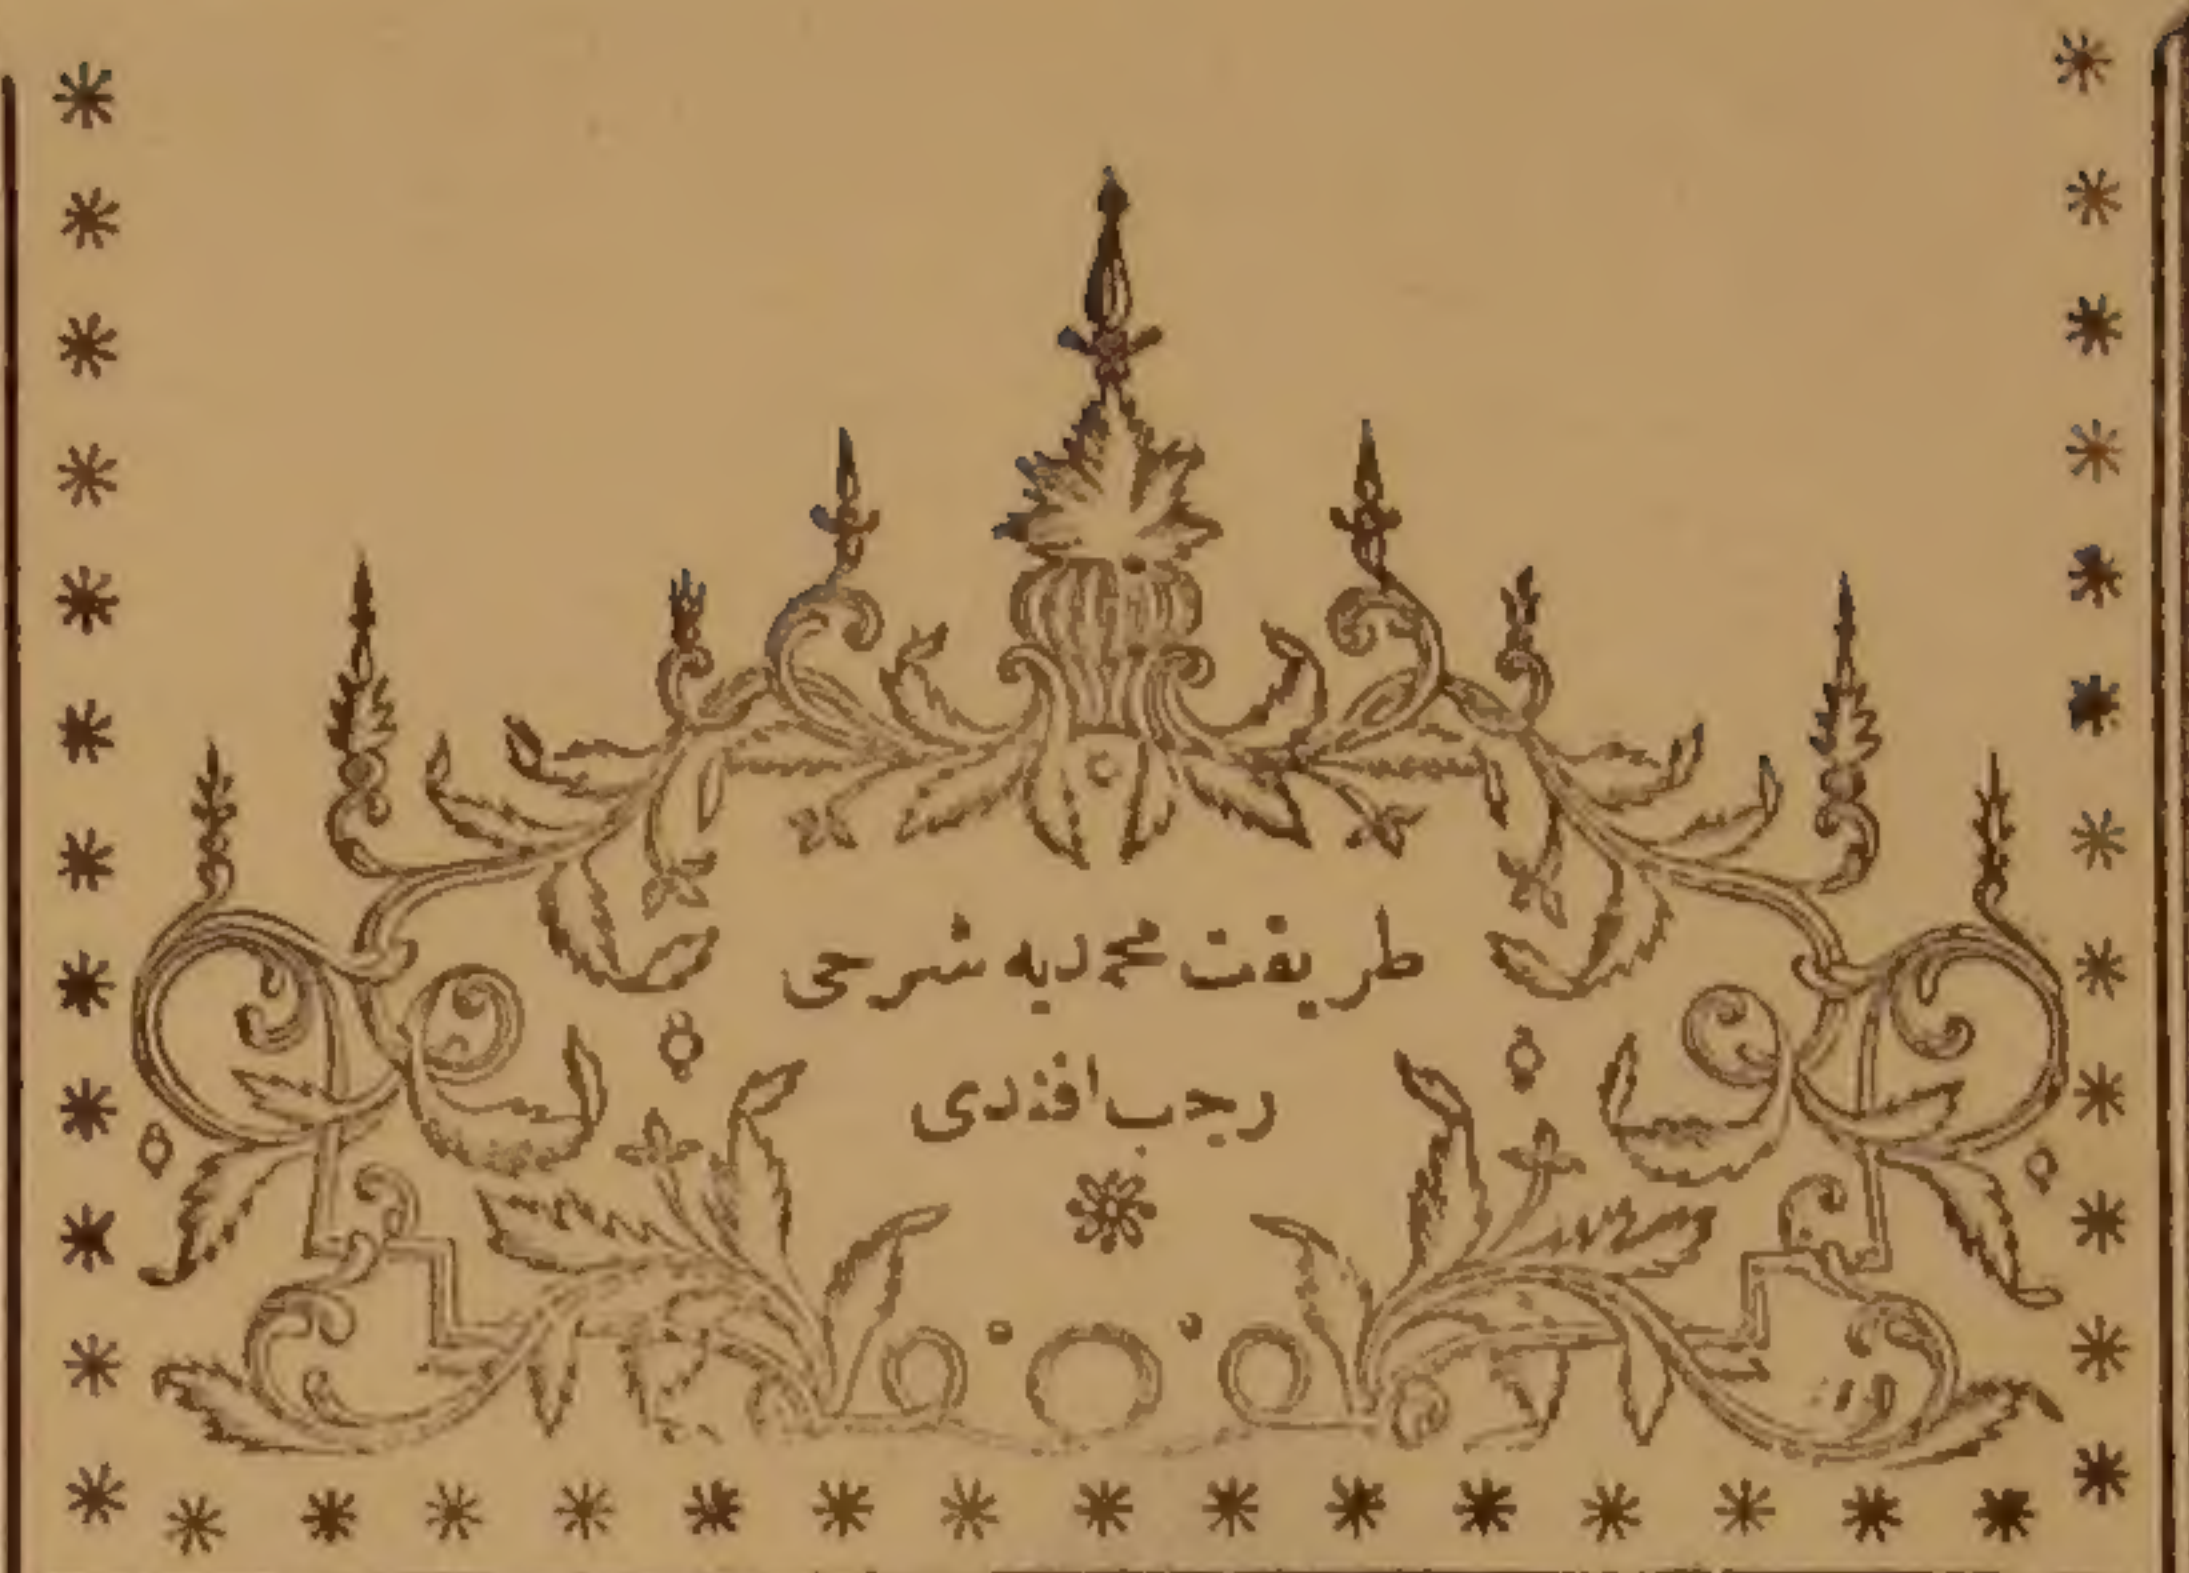 طريقت محمديه شرحى
رجب افندى